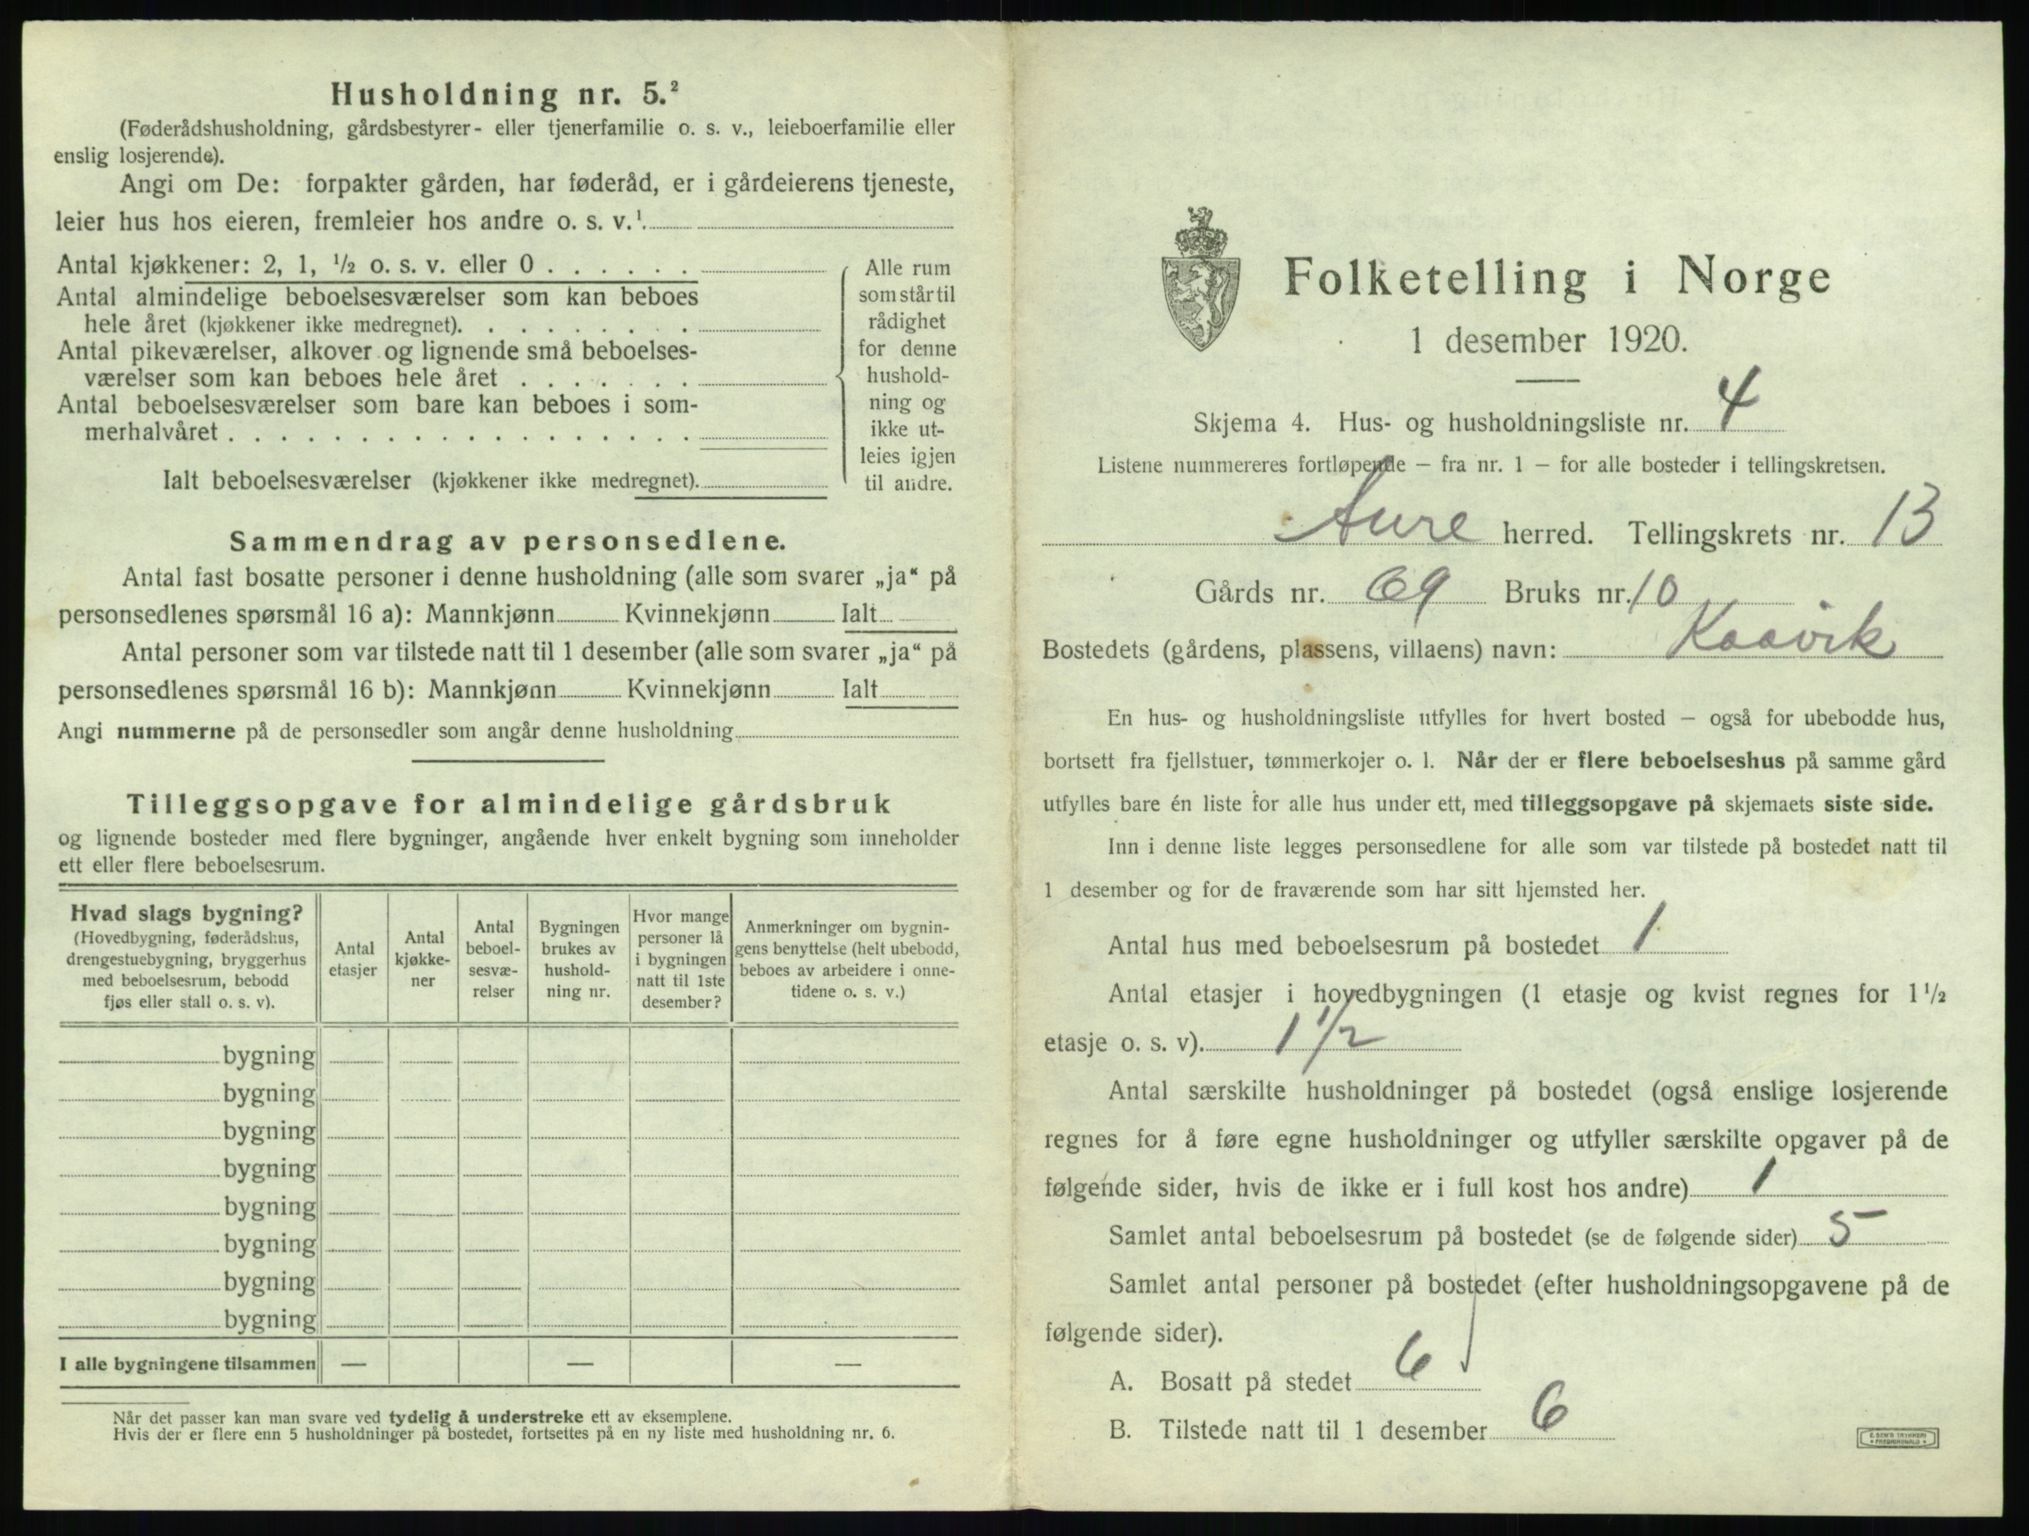 Husholdning nr. 5.²
(Føderådshusholdning, gårdsbestyrer- eller tjenerfamilie o. s. v., leieboerfamilie eller
enslig losjerende).
Angi om De: forpakter gården, har føderåd, er i gårdeierens tjeneste,
leier hus hos eieren, fremleier hos andre o. s. v.¹
Antal kjøkkener: 2, 1, ½ o. s. v. eller 0 . . . . . .
Antal almindelige beboelsesværelser som kan beboes
hele året (kjøkkener ikke medregnet). . . . . . . . .
Antal pikeværelser, alkover og lignende små beboelses-
værelser som kan beboes hele året . . . . . . .
Antal beboelsesværelser som bare kan beboes i som-
merhalvåret . . . . . . . . . . . . . . . . .
Ialt beboelsesværelser (kjøkkener ikke medregnet).
Alle rum
som står til
rådighet
for denne
hushold-
ning og
ikke ut-
leies igjen
til andre.
Sammendrag av personsedlene.
Antal fast bosatte personer i denne husholdning (alle som svarer „ja“ på
personsedlenes spørsmål 16 a): Mannkjønn Kvinnekjønn Ialt
Antal personer som var tilstede natt til 1 desember (alle som svarer „ja“ på
personsedlenes spørsmål 16 b): Mannkjønn Kvinnekjønn Ialt
Angi nummerne på de personsedler som angår denne husholdning
Tilleggsopgave for almindelige gårdsbruk
og lignende bosteder med flere bygninger, angående hver enkelt bygning som inneholder
ett eller flere beboelsesrum.
Hvad slags bygning?
(Hovedbygning, føderådshus,
drengestuebygning, bryggerhus
med beboelsesrum, bebodd
fjøs eller stall o. s. v).
Antal
etasjer
Antal
kjøkke-
ner
Antal
beboel-
sesvæ-
relser
Bygningen
brukes av
hushold-
ning nr.
Hvor mange
personer lå
i bygningen
natt til 1ste
desember?
Anmerkninger om bygnin-
gens benyttelse (helt ubebodd,
beboes av arbeidere i onne-
tidene o. s. v.)
bygning
bygning
bygning
bygning
bygning
bygning
bygning
bygning
I alle bygningene tilsammen — — —
Når det passer kan man svare ved tydelig å understreke ett av eksemplene.
Hvis der er flere enn 5 husholdninger på bostedet, fortsettes på en ny liste med husholdning nr. 6.
Folketelling i Norge
1 desember 1920.
Skjema 4. Hus- og husholdningsliste nr. 4
Listene nummereres fortløpende – fra nr. 1 – for alle bosteder i tellingskretsen.
Aure herred. Tellingskrets nr. 13
Gårds nr. 69 Bruks nr. 10
Bostedets (gårdens, plassens, villaens) navn: Kaavik
En hus- og husholdningsliste utfylles for hvert bosted – også for ubebodde hus,
bortsett fra fjellstuer, tømmerkojer o. l. Når der er flere beboelseshus på samme gård
utfylles bare én liste for alle hus under ett, med tilleggsopgave på skjemaets siste side.
Inn i denne liste legges personsedlene for alle som var tilstede på bostedet natt til
1 desember og for de fraværende som har sitt hjemsted her.
Antal hus med beboelsesrum på bostedet 1
Antal etasjer i hovedbygningen (1 etasje og kvist regnes for 1 ½
etasje o. s. v). 1 1/2
Antal særskilte husholdninger på bostedet (også enslige losjerende
regnes for å føre egne husholdninger og utfyller særskilte opgaver på de
følgende sider, hvis de ikke er i full kost hos andre) 1
Samlet antal beboelsesrum på bostedet (se de følgende sider) 5
Samlet antal personer på bostedet (efter husholdningsopgavene på de
følgende sider).
A. Bosatt på stedet 6
B. Tilstede natt til 1 desember 6